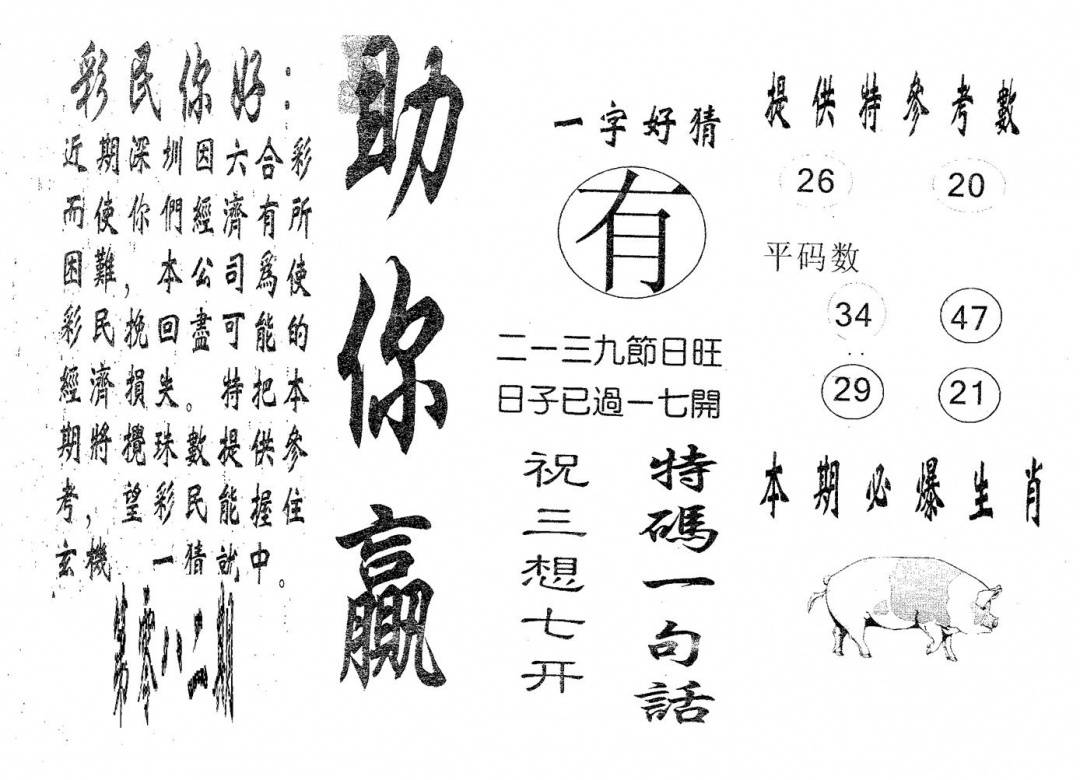 彩民你好：
近期深圳因六合彩
而使你們經濟有所
困難，本公司為使
彩民挽回盡可能的
經濟損失。特把本
期將攪珠數提供參
考，望彩民能握住
玄機 一猜就中。
第零八二期
助你贏
一字好猜
有
二一三九節日旺
日子已過一七開
祝三想七开
特碼一句話
提供特參考數
26 20
平码数
34 47
29 21
本期必爆生肖